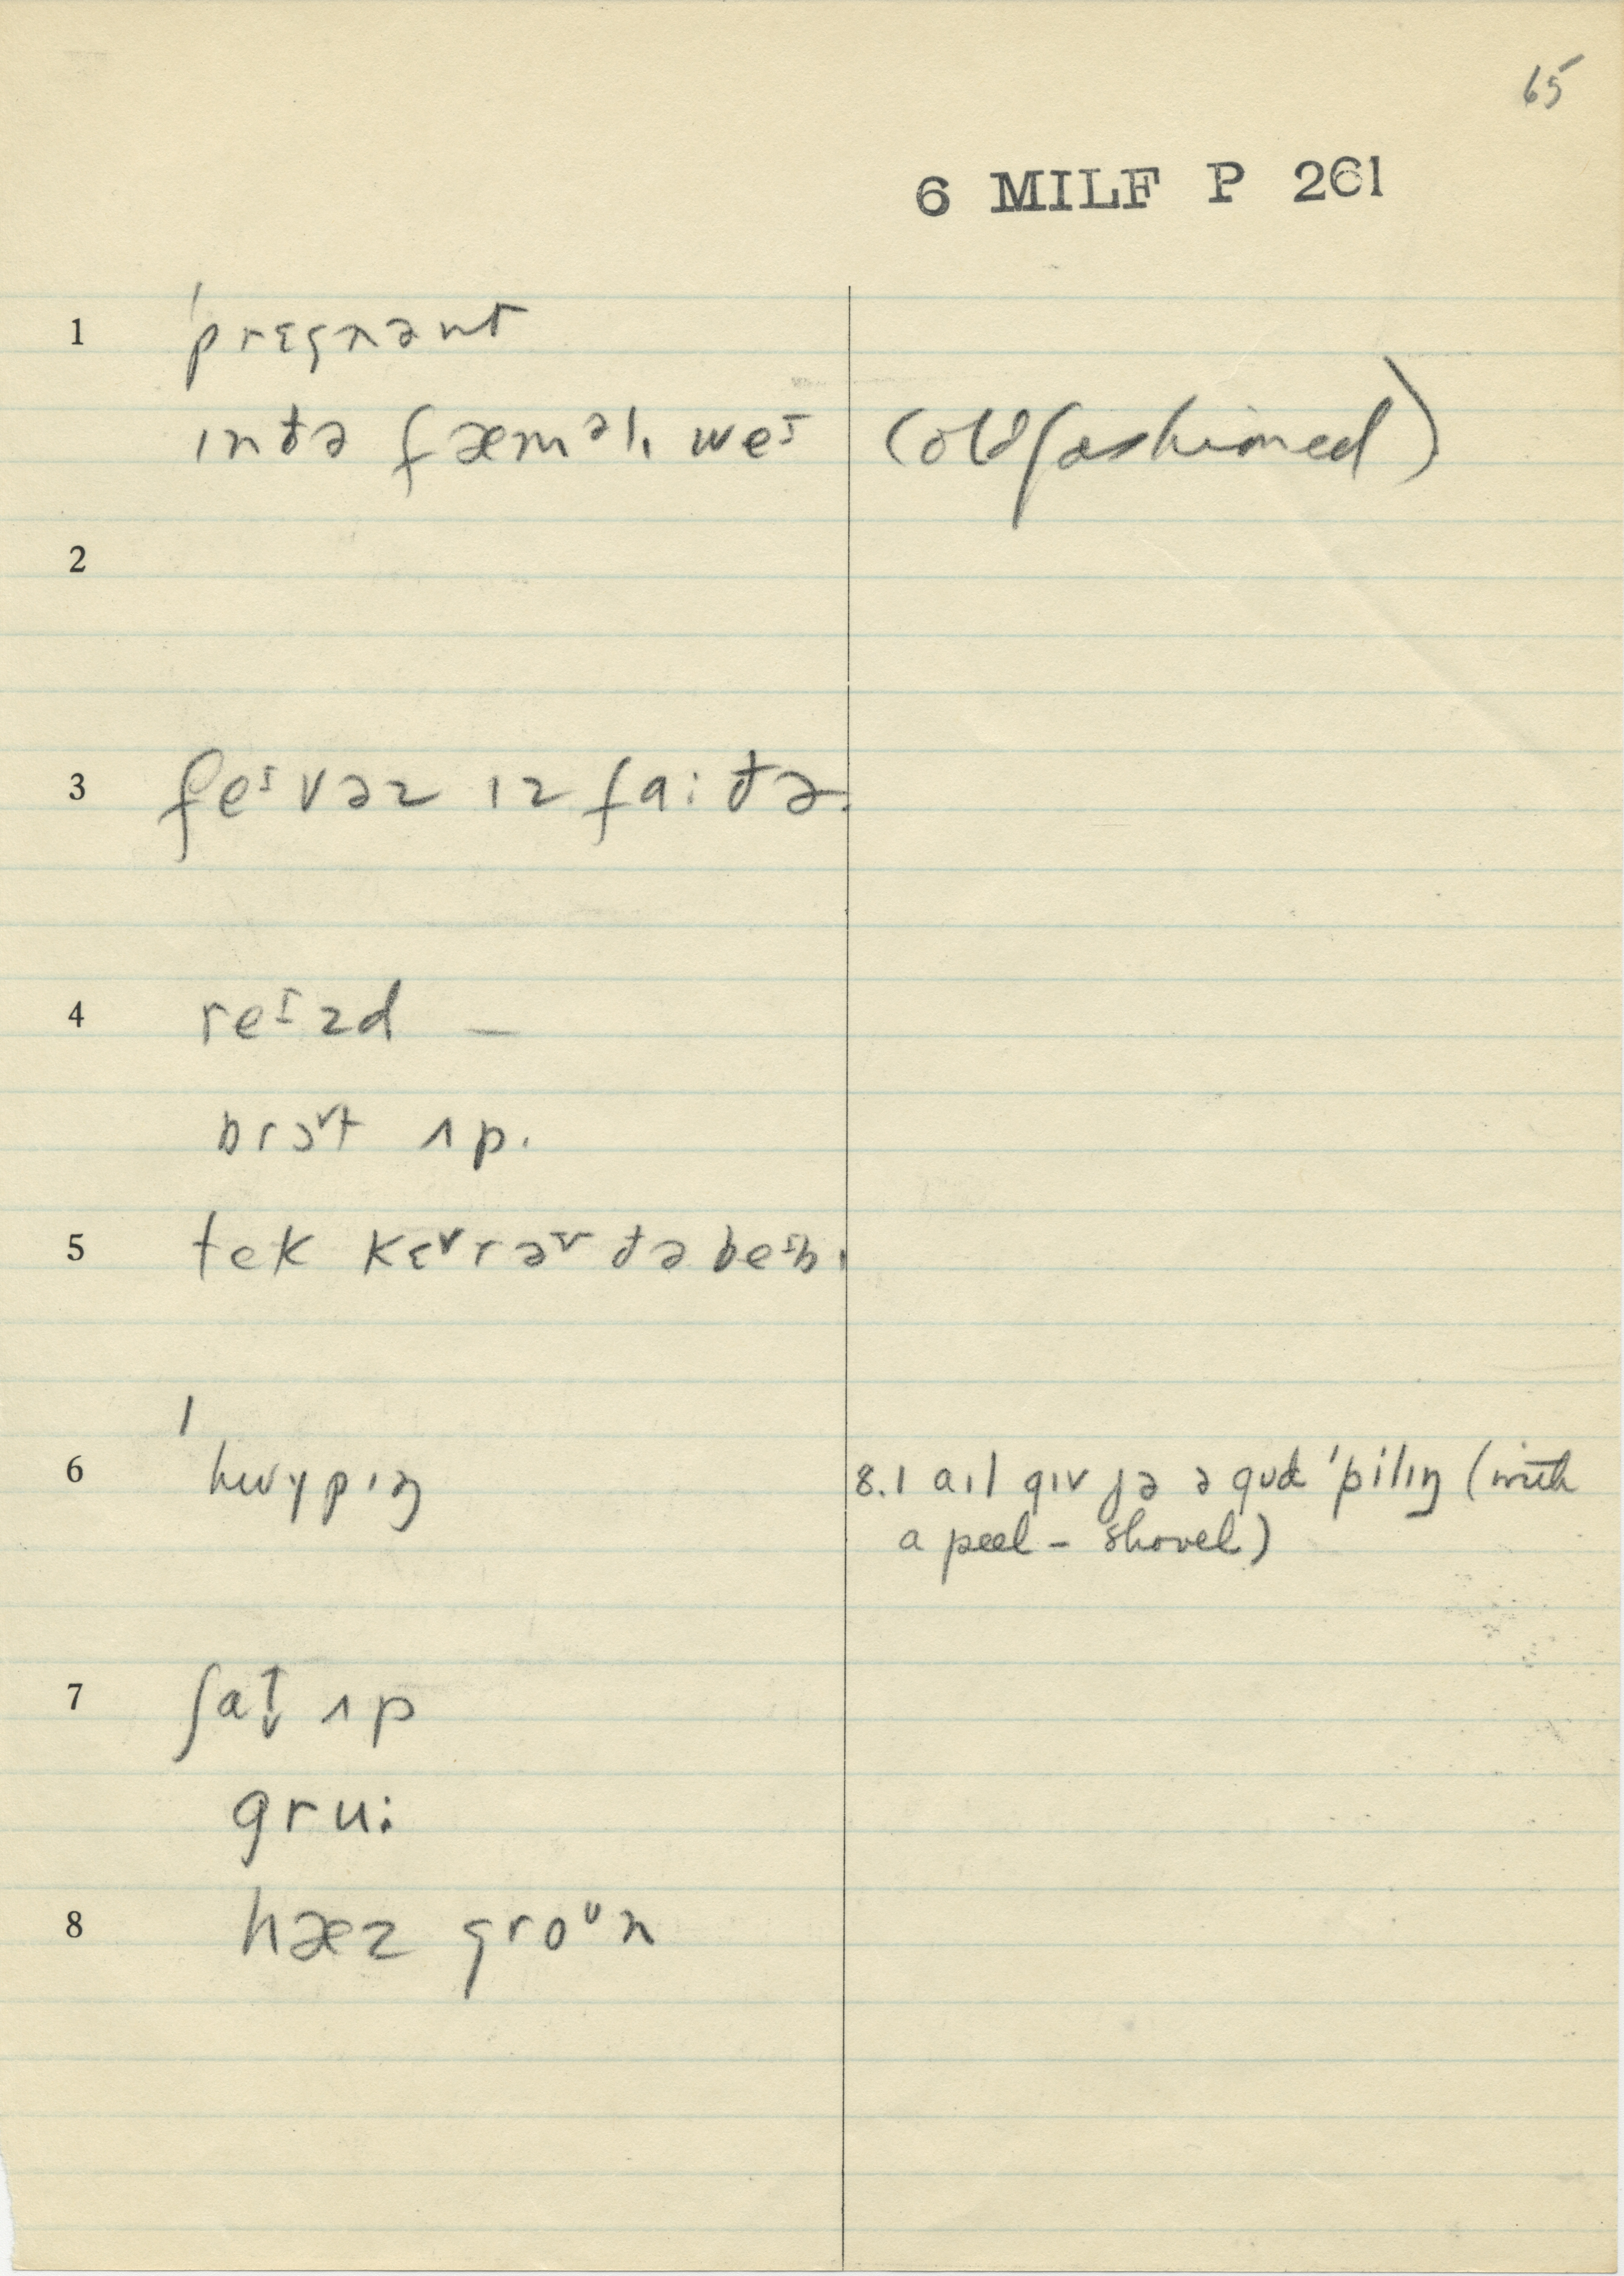 65
6 MILF P 261
1 ˈprɛgnənt
ɪnðə fæməlɪ weᶦ (old fashioned)
2
3 feᶦvəz ɪz fa:ðə.
4 reᶦzd –
brɔᵛt ʌp.
5 tek kɛᵛrəᵛ ðə beᶦbɪ
6 ˈhwɣpɪŋ 8.1 aɪl gɪv jə ə gʊd ˈpilɪŋ (with
a peel – shovel)
7 ʃat ʌp
gru:
8 hæz groᶷn